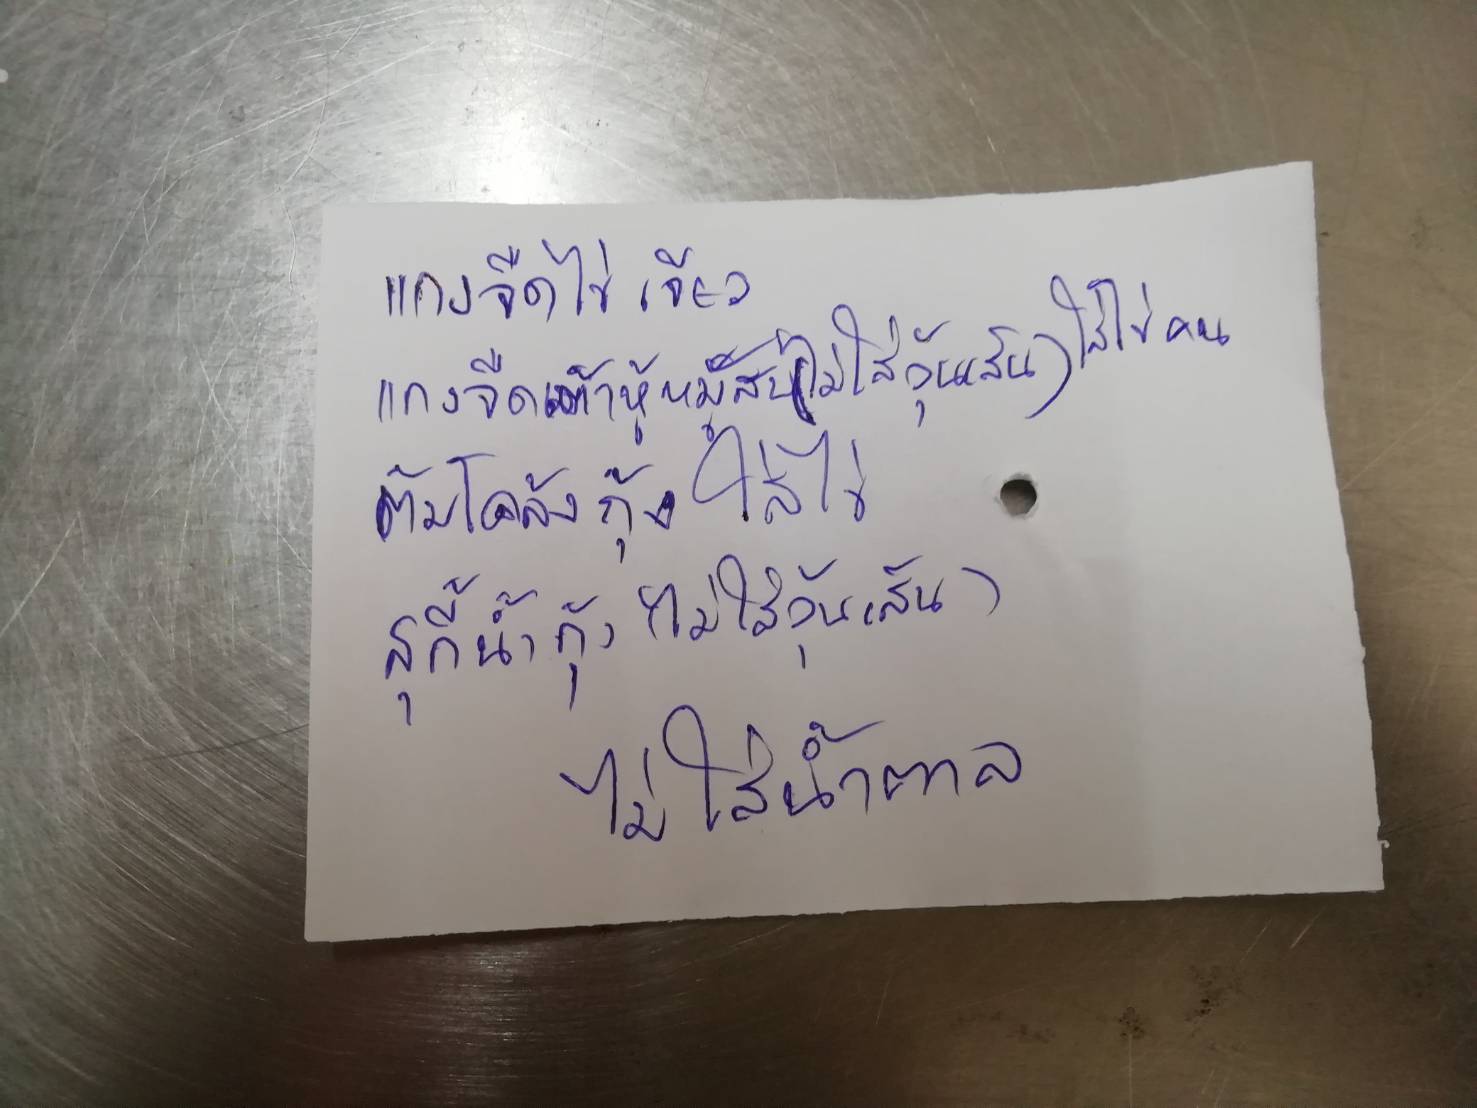 แกงจืดไข่เจียว
แกงจืดเต้าหู้หมูสับ(ไม่ใส่วุ้นเส้น) ใส่ไข่คน
ต้มโคล้งกุ้ง ใส่ไข่
สุกี้น้ำกุ้ง (ไม่ใส่วุ้นเส้น)
ไม่ใส่น้ำตาล